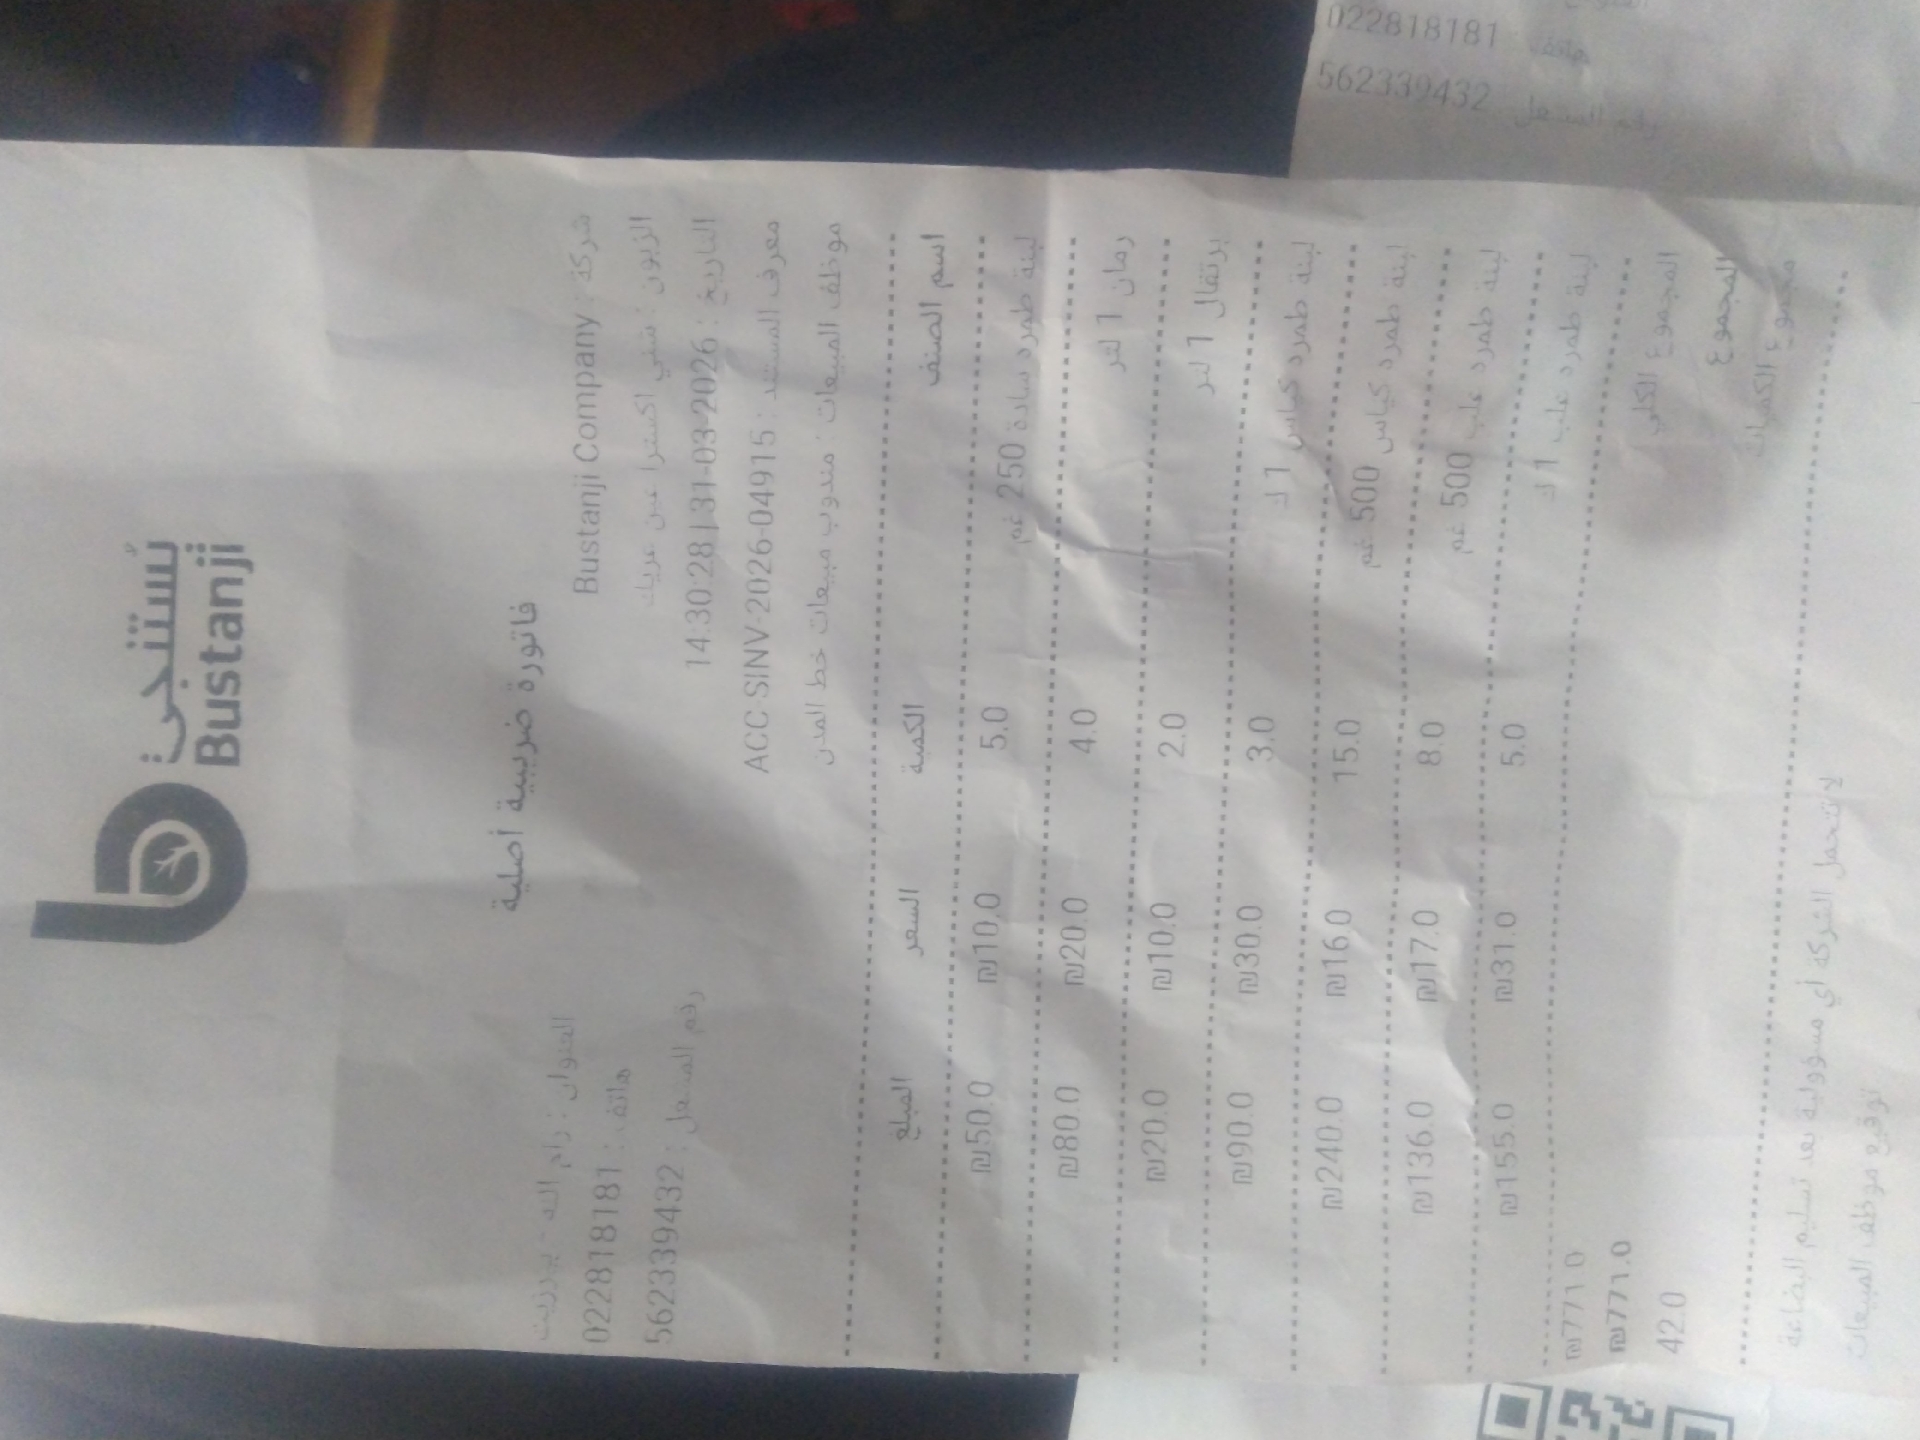 بُستنجي
Bustanji
فاتورة ضريبية أصلية
شركة : Bustanji Company
العنوان : رام الله - بيرزيت
الزبون : شني اكسترا عين عريك
هاتف : 022818181
التاريخ : 2026-03-31 | 14:30:28
رقم المشغل : 562339432
معرف المستند : ACC-SINV-2026-04915
موظف المبيعات : مندوب مبيعات خط المدن
اسم الصنف الكمية السعر المبلغ
لبنة طمرد سادة 250 غم 5.0 ₪10.0 ₪50.0
رمان 1 لتر 4.0 ₪20.0 ₪80.0
برتقال 1 لتر 2.0 ₪10.0 ₪20.0
لبنة طمرد كياس 1 ك 3.0 ₪30.0 ₪90.0
لبنة طمرد كياس 500 غم 15.0 ₪16.0 ₪240.0
لبنة طمرد علب 500 غم 8.0 ₪17.0 ₪136.0
لبنة طمرد علب 1 ك 5.0 ₪31.0 ₪155.0
المجموع الكلي ₪771.0
المجموع ₪771.0
مجموع الكميات 42.0
لا تتحمل الشركة أي مسؤولية بعد تسليم البضاعة
توقيع موظف المبيعات
هاتف : 022818181
رقم المشغل : 562339432